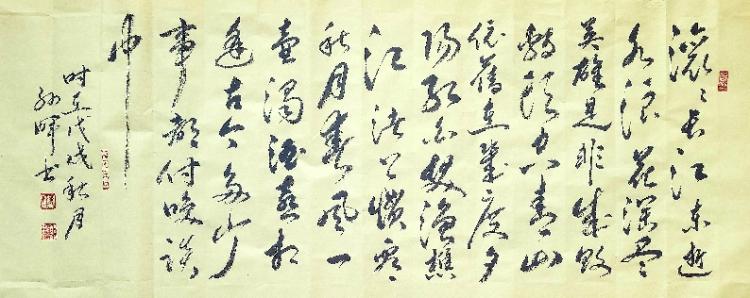 滚滚长江东逝
水浪花淘尽
英雄是非成败
转头空青山
依旧在几度夕
阳红白发渔樵
江渚上惯看
秋月春风一
壶浊酒喜相
逢古今多少
事都付笑谈
中
时在戊戌秋月
书